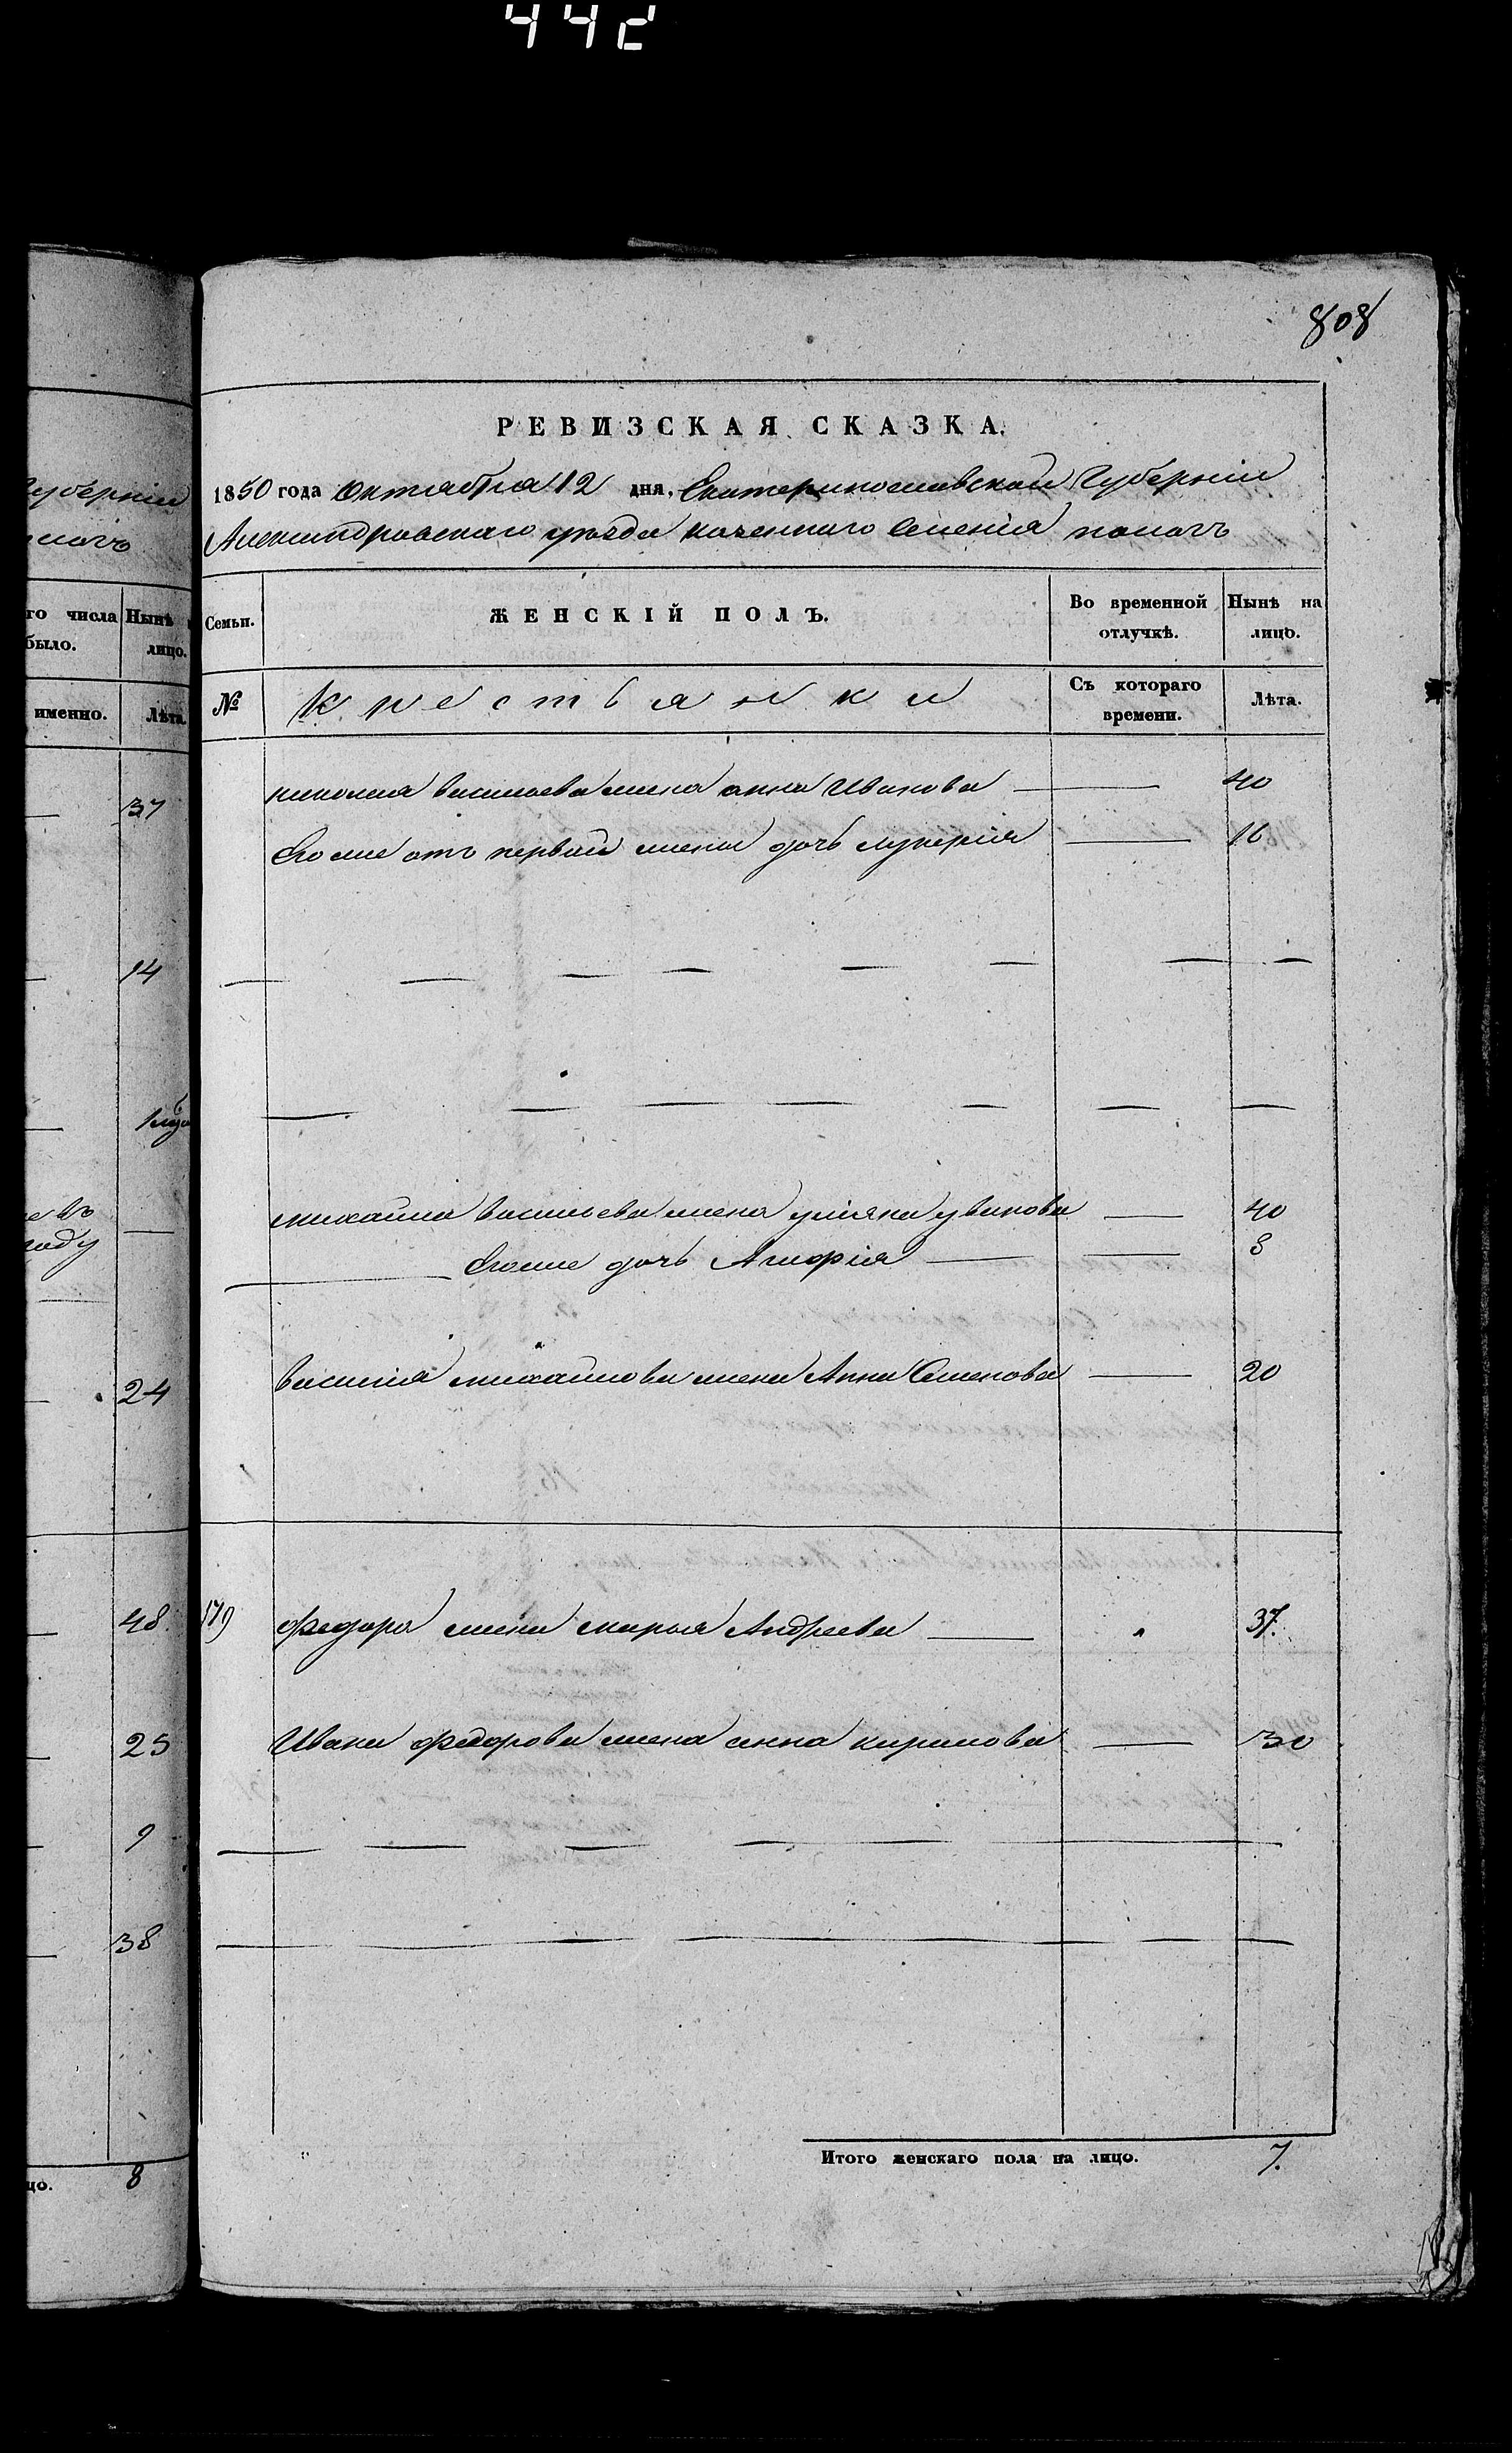 442
808
РЕВИЗСКАЯ СКАЗКА.
1850 года Октября 12 дня, Екатеринославской Губерніи
Александровскаго уезда казеннаго Селенія пологъ
Губерніи
го числа было.
Нынѣ
лицо.
именно.
Лѣта.
37
14
24
48
25
9
38
цо. 8
Семьи.
ЖЕНСКІЙ ПОЛЪ.
Во временной отлучкѣ.
Нынѣ на лицо.
№
крестьянки
Съ котораго времени.
Лѣта.
николая васильева жена анна Иванова 40
Его же отъ первой жены дочь лукерія 16
михайла васильева жена уліяна 40
Его же дочь 8
василия михайлова жена Анна Семенова 20
179 Федора жена марья Андреева 37.
Ивана федорова жена анна кирилова 30
Итого женскаго пола на лицо. 7.